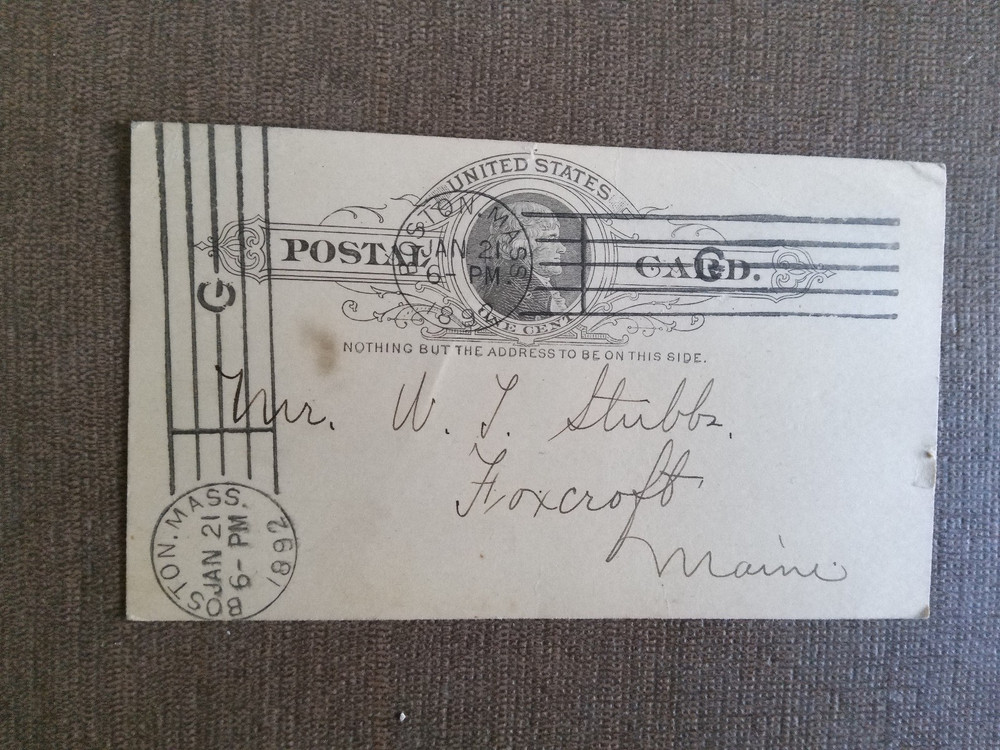 UNITED STATES
POSTAL CARD.
ONE CENT
NOTHING BUT THE ADDRESS TO BE ON THIS SIDE.
BOSTON. MASS.
JAN 21
6- PM.
1892
G
Mr. W. T. Stubbs.
Foxcroft
Maine
G
BOSTON. MASS.
JAN 21
6- PM.
1892